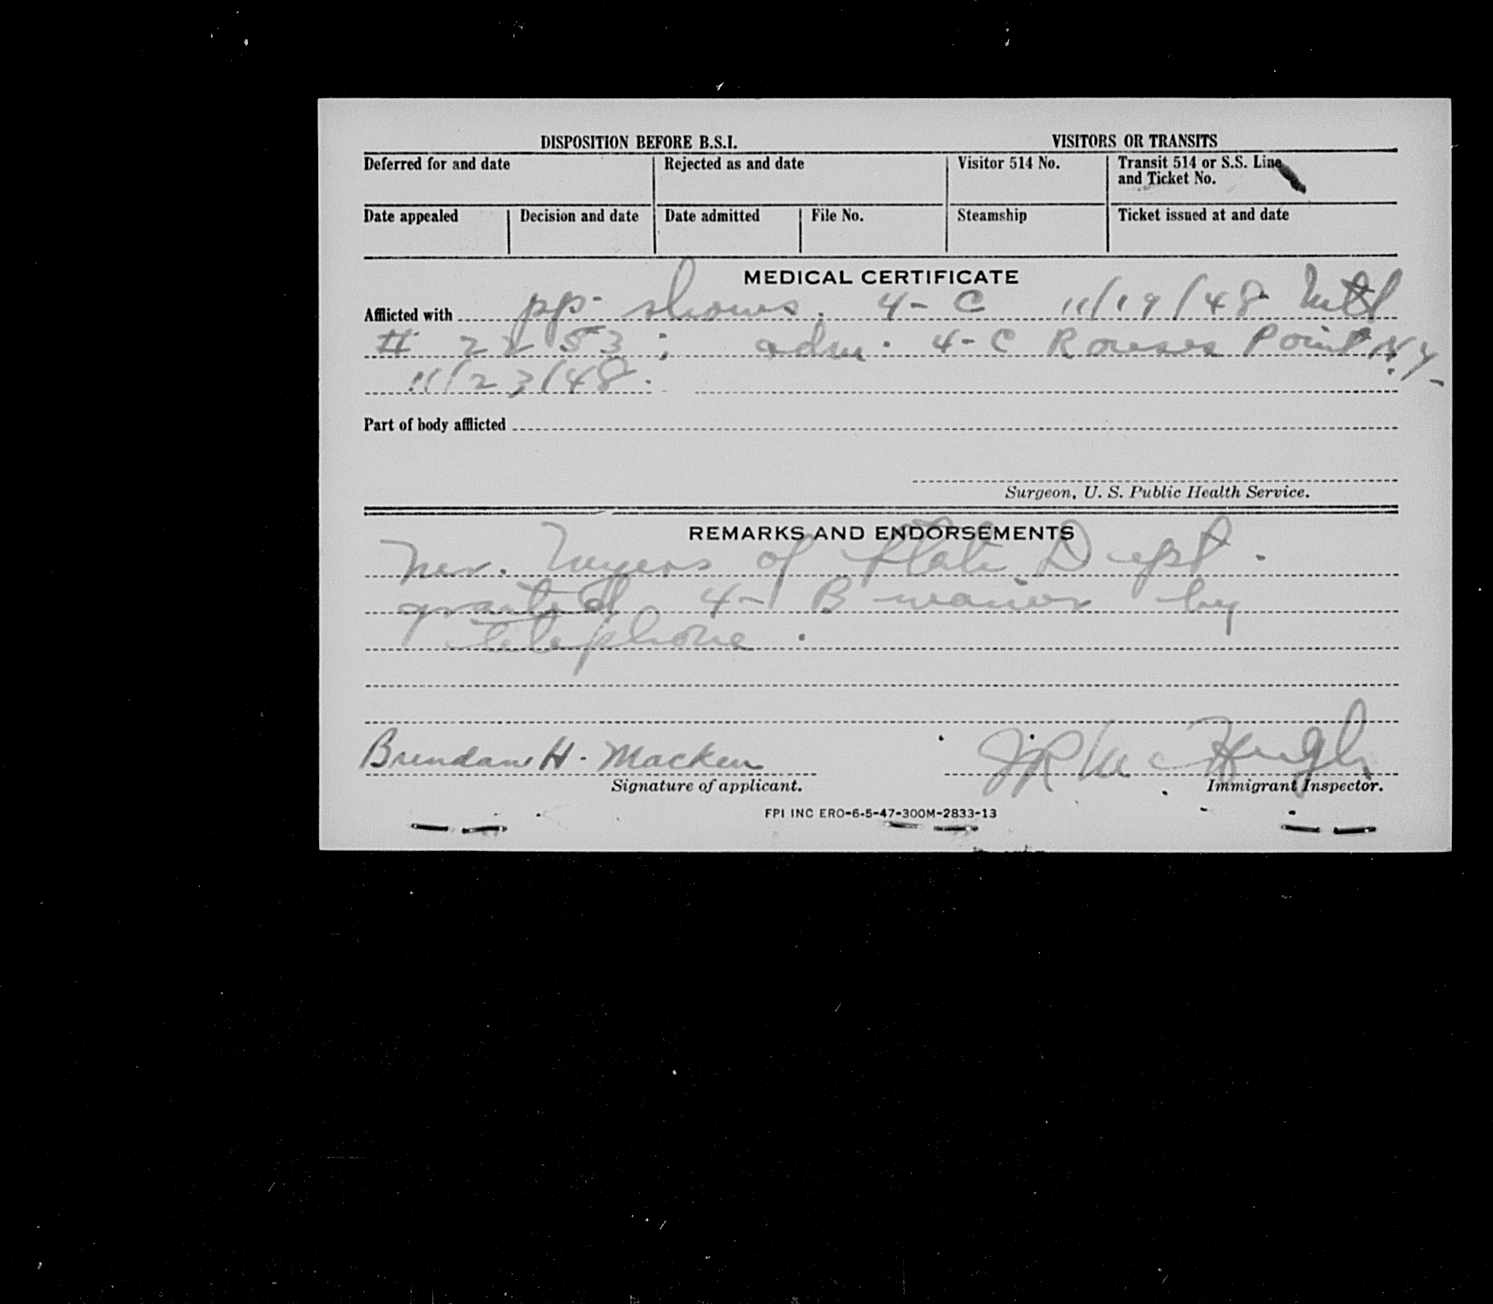 DISPOSITION BEFORE B.S.I. VISITORS OR TRANSITS
Deferred for and date Rejected as and date Visitor 514 No. Transit 514 or S.S. Line
and Ticket No.
Date appealed Decision and date Date admitted File No. Steamship Ticket issued at and date
MEDICAL CERTIFICATE
Afflicted with pp. shows. 4-C 11/19/48 Mtl
# 2253; adm. 4-C Rouses Point N.Y.
11/23/48.
Part of body afflicted
Surgeon, U. S. Public Health Service.
REMARKS AND ENDORSEMENTS
Mr. Meyers of State Dept.
granted 4-B waiver by
telephone.
Brendan H. Macken J R McHugh
Signature of applicant. Immigrant Inspector.
FPI INC ERO-6-5-47-300M-2833-13